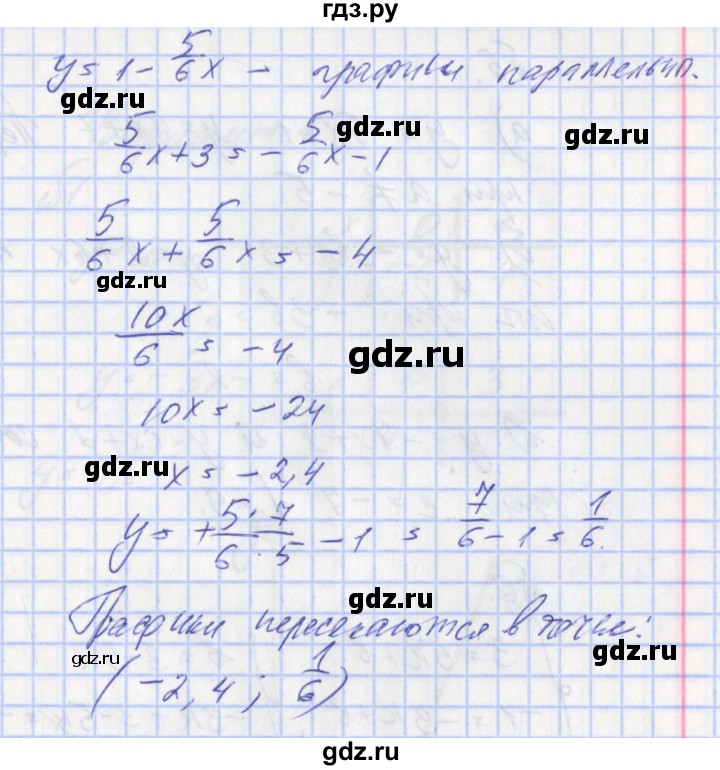 гдз.ру
y = 1 - 5/6 x - графики параллельн.
gdz.ru
gdz.ru
gdz.ru
5/6 x + 3 = - 5/6 x - 1
5/6 x + 5/6 x = - 4
gdz.ru
10x/6 = - 4
gdz.ru
10x = - 24
gdz.ru
x = - 2,4
y = + 5·7/6·5 - 1 = 7/6 - 1 = 1/6.
gdz.ru
gdz.ru
Графики пересекаются в точке:
gdz.ru
gdz.ru
(-2,4; 1/6)
gdz.ru